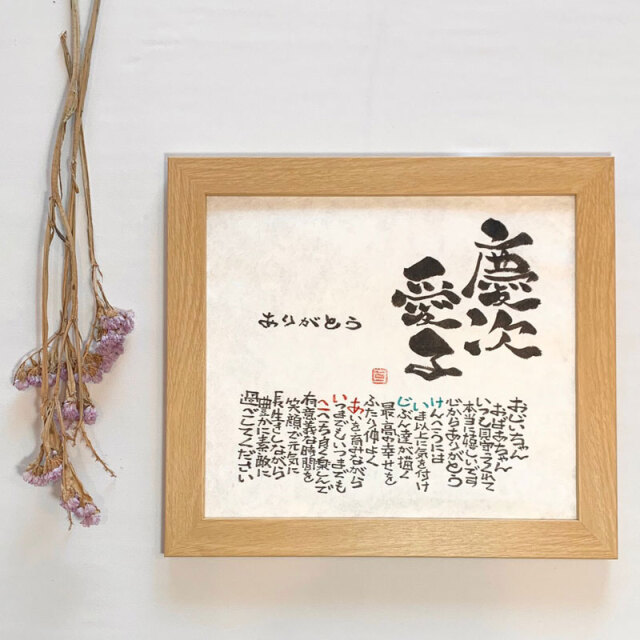 慶次
愛子
ありがとう
おじいちゃん
おばあちゃん
いつも見守ってくれて
本当に嬉しいです
心からありがとう
けんこうには
いま以上に気を付け
じぶん達が描く
最高の幸せを
ふたり仲よく
あいを育みながら
いつまでもいつまでも
こころ良く
有意義な時間を
笑顔で元気に
長生きしながら
豊かに素敵に
過ごしてください